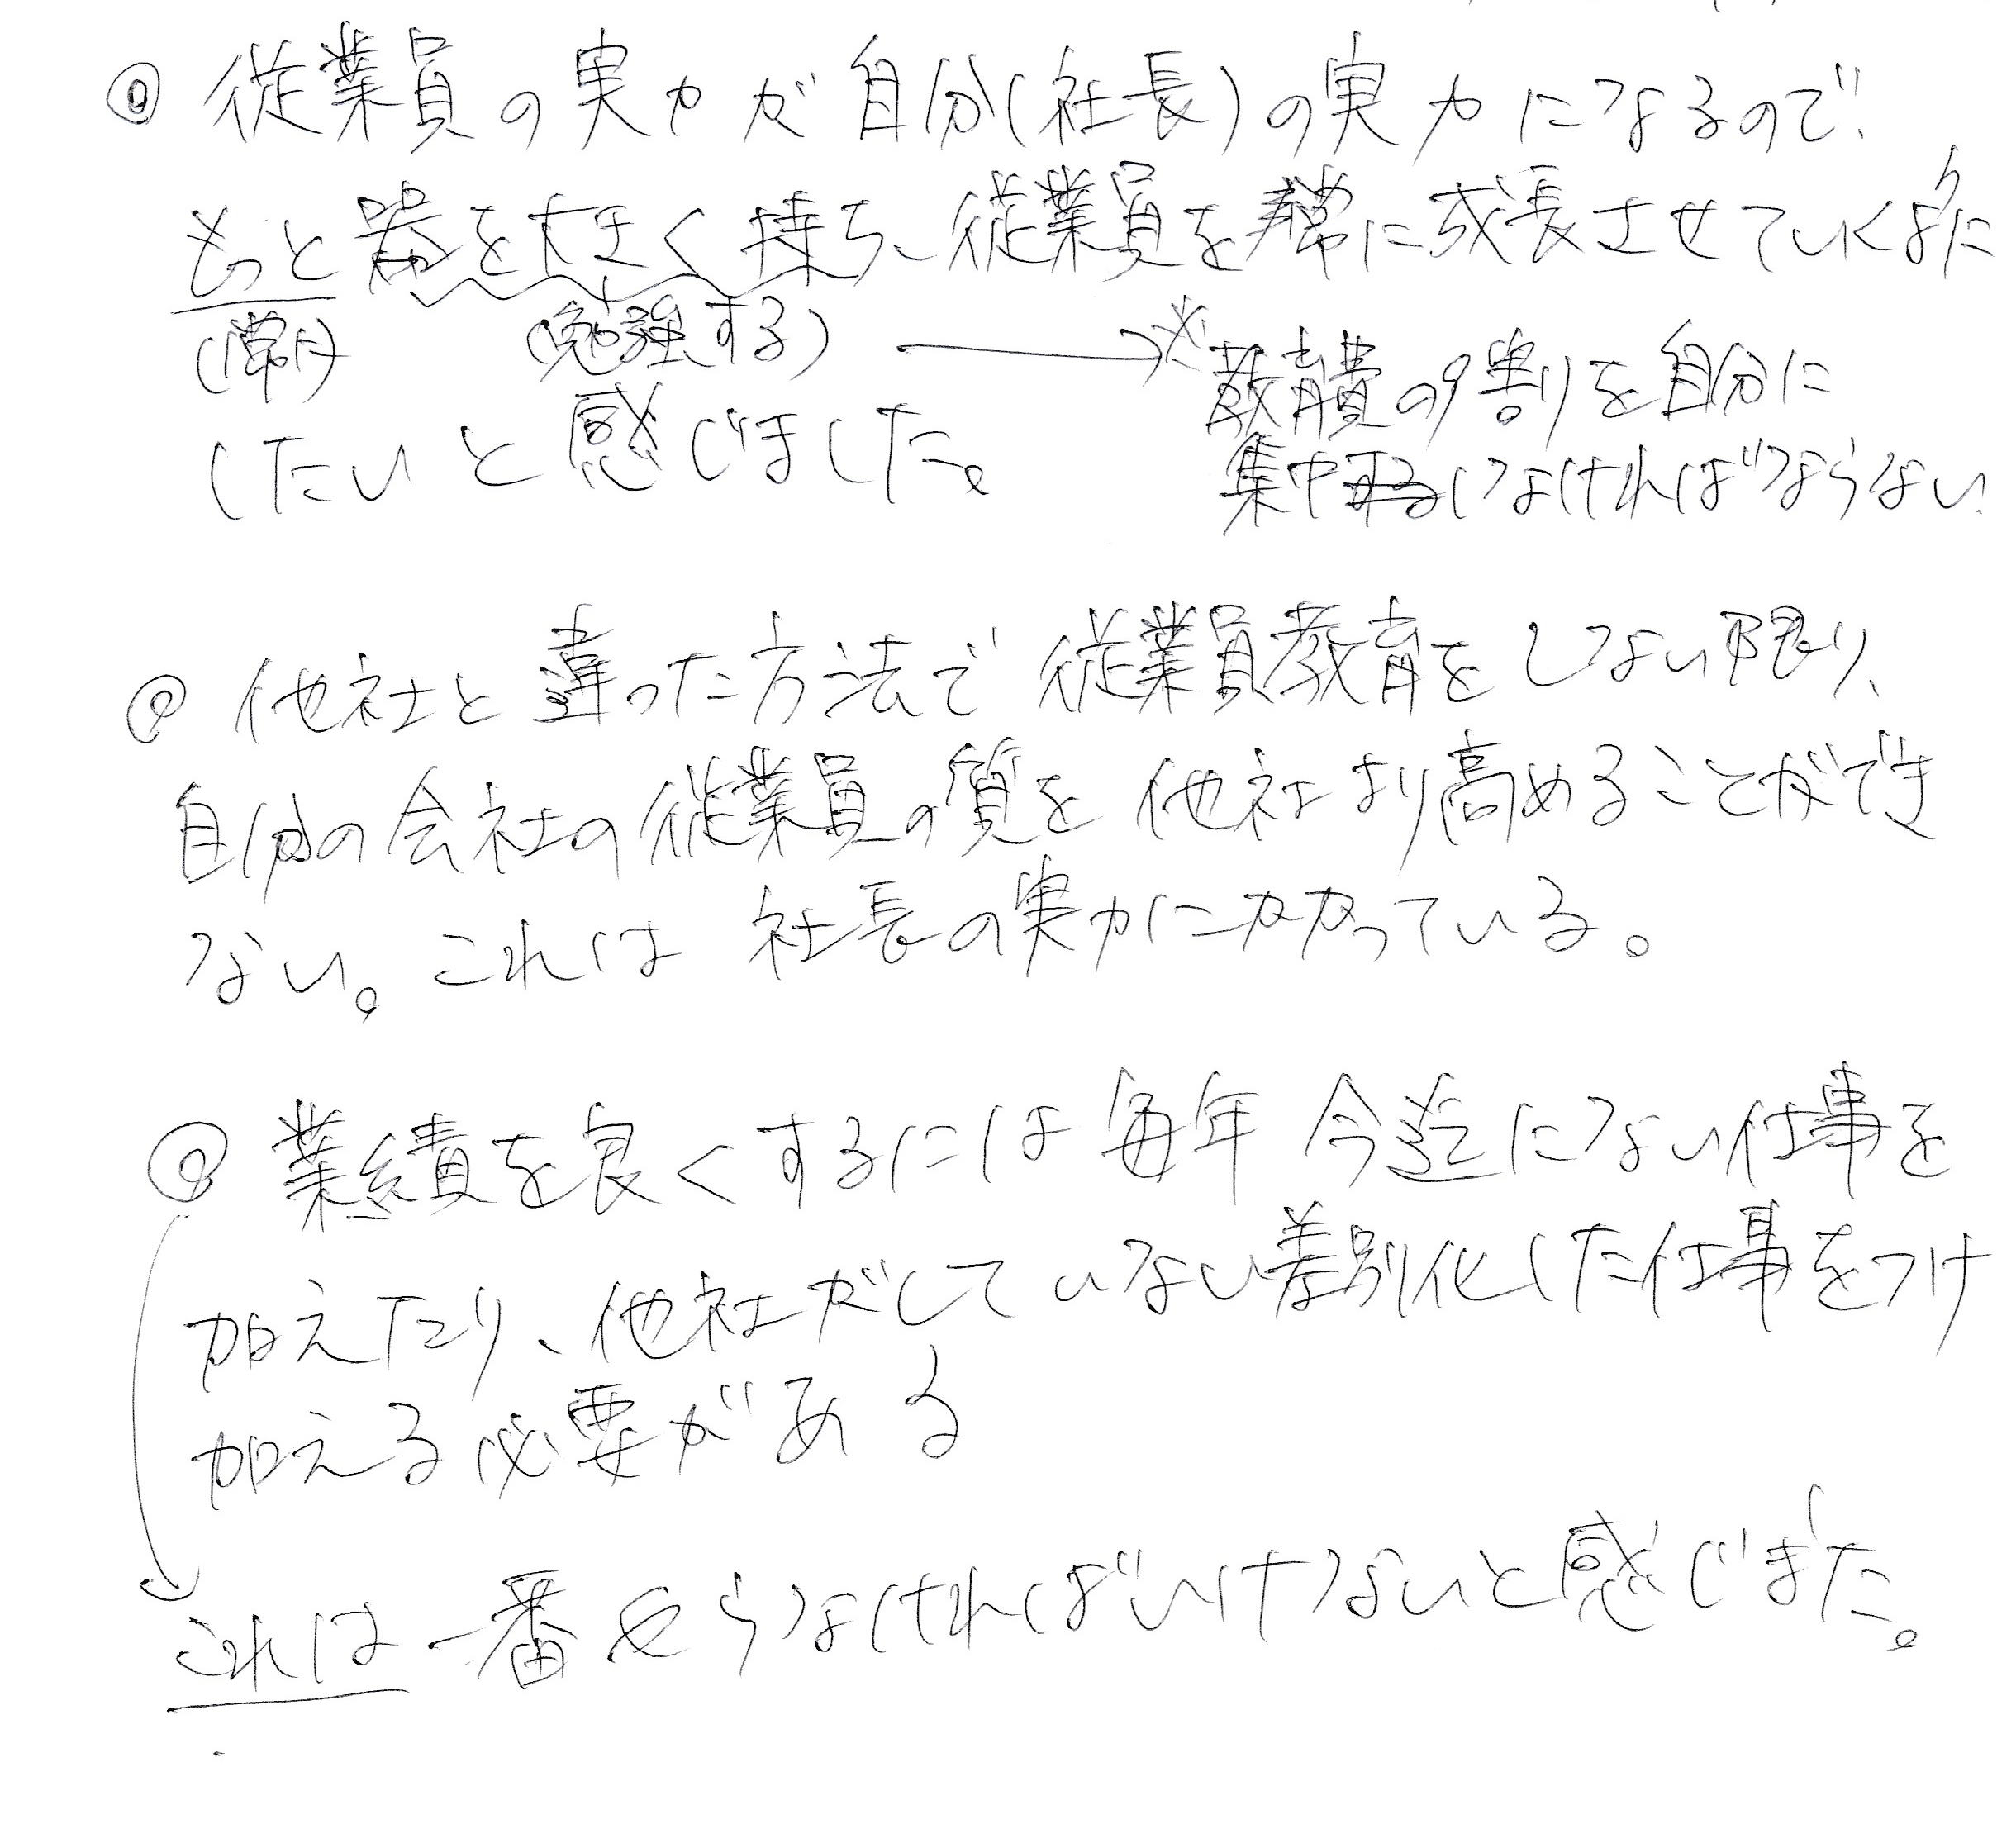 ◎ 従業員の実力が自分(社長)の実力になるので、
もっと器を大きく持ち、従業員を常に成長させていくように
(常に) (勉強する) → ※教育費の9割を自分に
したいと感じました。 集中しなければならない
◎ 他社と違った方法で従業員教育をしない限り、
自分の会社の従業員の質を他社より高めることができ
ない。これは 社長の実力にかかっている。
◎ 業績を良くするには毎年 今迄にない仕事を
加えたり、他社がしていない差別化した仕事をつけ
加える必要がある
これは一番やらなければいけないと感じました。